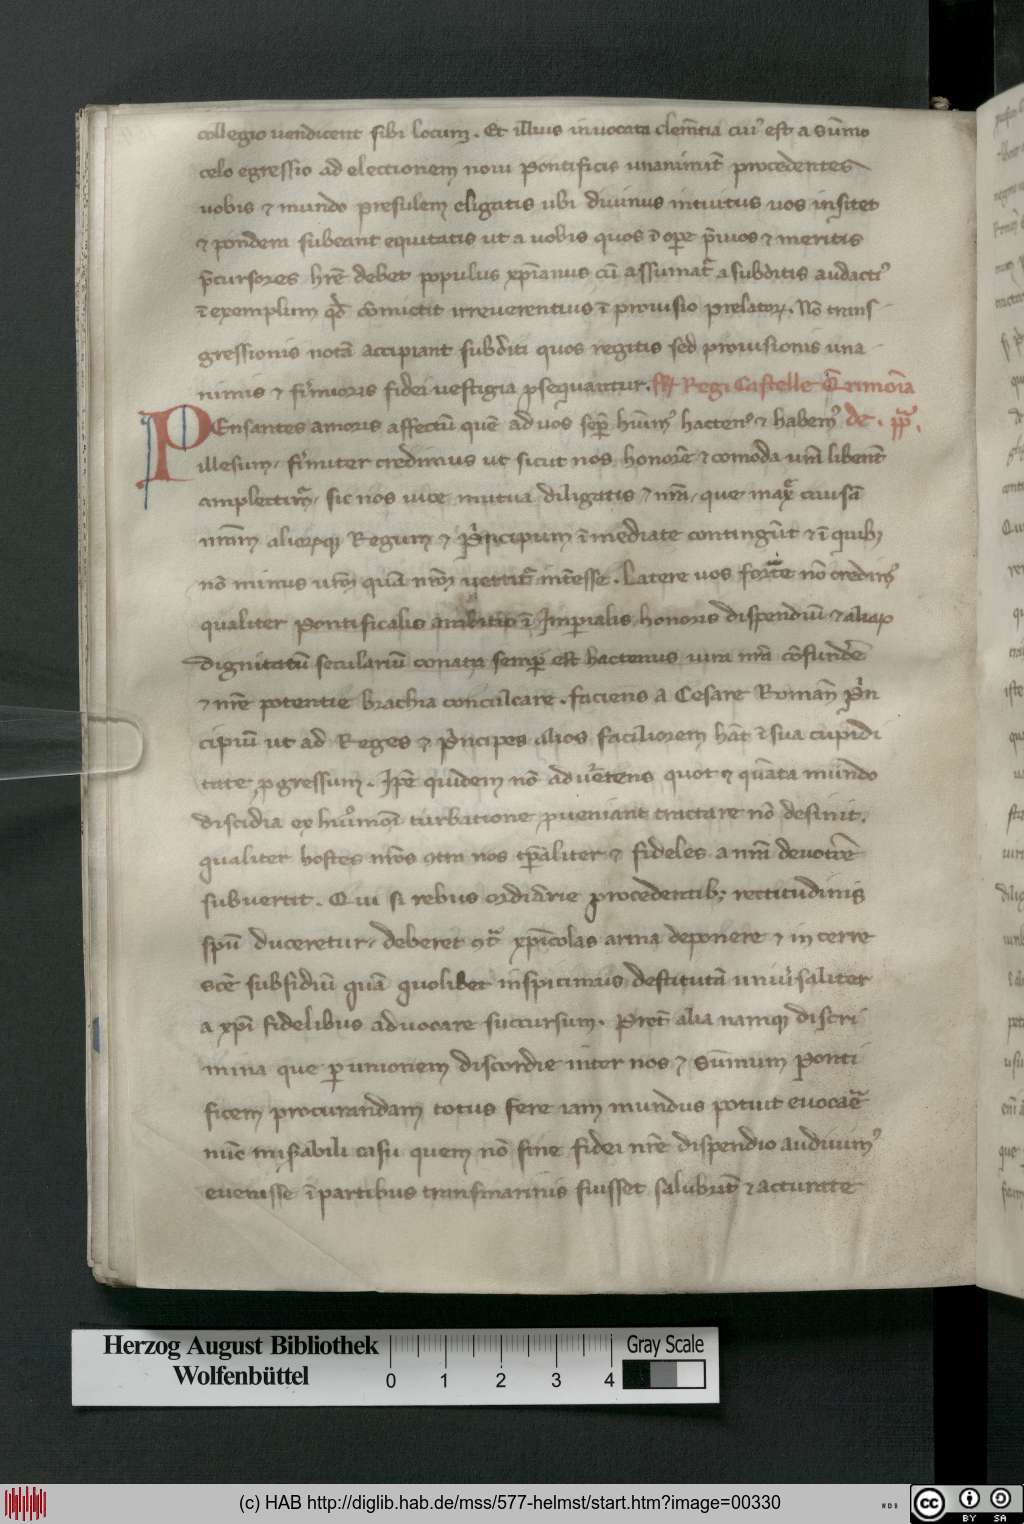 collegio vendicent sibi locum. Et illius invocata clem̄tia cui' est a sūmo
celo egressio ad electionem novi Pontificis unanimit̄ procedentes
vobis ⁊ mundo presulem eligatis ubi divinus intuitus vos insitet
⁊ pondera subeant equitatis ut a vobis quos ī oꝑe p̄mios ⁊ meritis
p̄cursores hr̄e debet populus xp̄ianus cū assumat᷑ a subditis audacti'
ī exemplum qd̄ cōmictit irreverentius ī provisio prelatoꝝ. Nō trans
gressionis notā accipiant subditi quos regitis sed provisionis una
nimis ⁊ firmioris fidei vestigia ꝓsequantur. Regi Castelle
PEnsantes amoris affectū quē ad vos semꝑ hūim' hacten' ⁊ habem' de. pp̄.
illesum, firmiter credimus ut sicut nos honorē ⁊ cōmoda vr̄m libent̄
amplectim᷑, sic nos vice mutua diligatis ⁊ nr̄a, que maxīe causā
nr̄am alioꝝq Regum ⁊ Principum īmediate contingūt ⁊ ī quibꝫ
nō minus vr̄om quā nr̄om vertit᷑ intēsse. Latere vos forte nō credim'
qualiter Pontificalis ambitio ī Imperialis honoris dispendiū ⁊ aliaꝝ
dignitatū seculariū conata semꝑ est hactenus iura nr̄a cōfundē
⁊ nr̄e potentie brachia conculcare. faciens a Cesare Romaṅ Prin
cipiū ut ad Reges ⁊ Principes alios faciliorem hāt ī sua cupidi
tate ꝓgressum. Ip̄e quidem nō advētens quot ⁊ quāta mundo
discidia ex hui'mōi turbatione ꝓveniant tractare nō desinit,
qualiter hostes nr̄os ꝯtra nos tp̄aliter ⁊ fideles a nr̄a devotōe
subvertit. Qui si rebus ordīarie procedentibꝫ rectitudinis
spū duceretur, deberet ꝯtᵃ xp̄icolas arma deponere ⁊ in terre
scē subsidiū quā quolibet inspicimus destitutā univ̄saliter
a xp̄i fidelibus advocare succursum. Pret̄ alia namq discri
mina que ꝑ unionem discordie inter nos ⁊ Sūmum Ponti
ficem procurandam totus fere iam mundus potuit evocaē
nūc miserabili casu quem nō sine fidei nr̄e dispendio audivim'
evenisse ī partibus transmarinis fuisset salubrit̄ ⁊ accurate
Herzog August Bibliothek
Wolfenbüttel
0 1 2 3 4
Gray Scale
(c) HAB http://diglib.hab.de/mss/577-helmst/start.htm?image=00330
WDB
cc BY SA